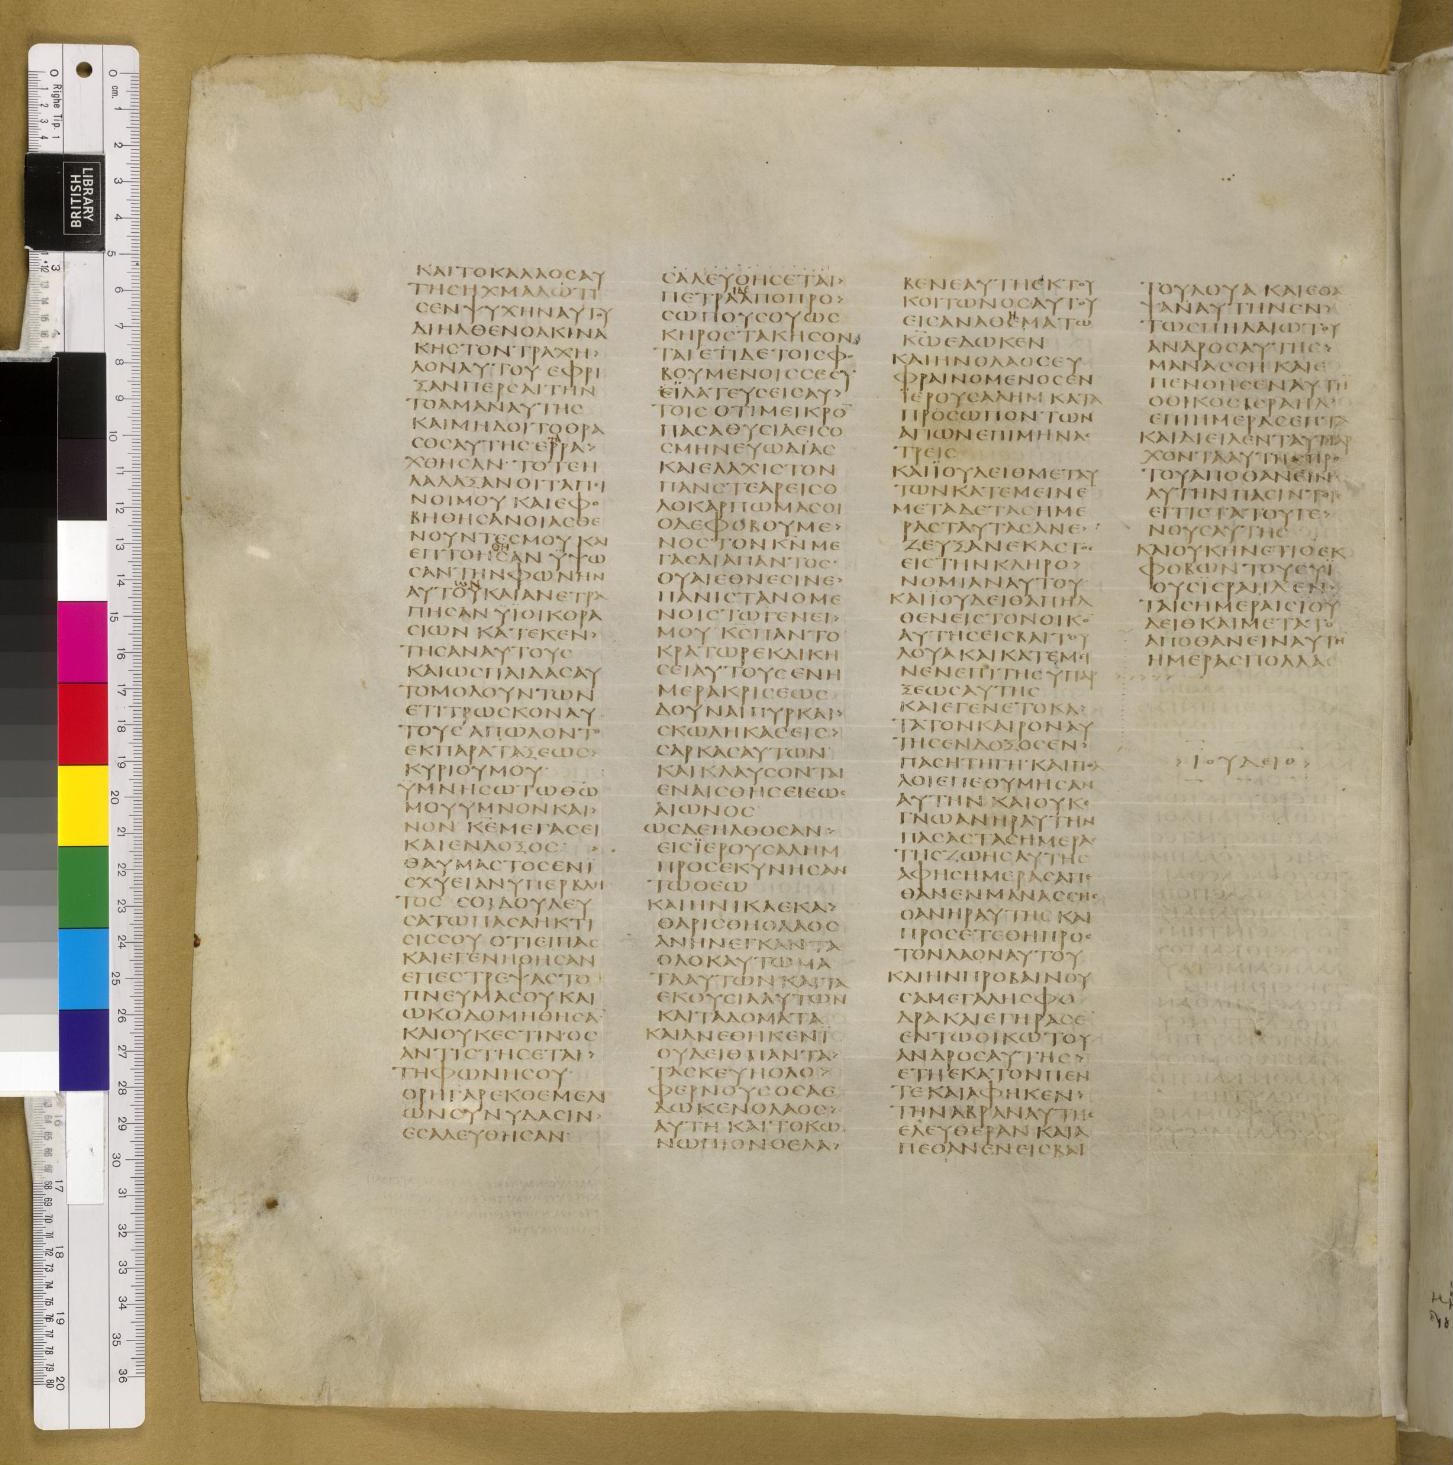 ΚΑΙΤΟΚΑΛΛΟCΑΥ
ΤΗCΗΧΜΑΛΩΤΙ
CΕΝΨΥΧΗΝΑΥΤΟΥ
ΔΙΗΛΘΕΝΟΑΚΙΝΑ
ΚΗCΤΟΝΤΡΑΧΗ›
ΛΟΝΑΥΤΟΥ ΕΦΡΙ
ΞΑΝΠΕΡCΑΙΤΗΝ
ΤΟΛΜΑΝΑΥΤΗC
ΚΑΙΜΗΔΟΙΤΟΘΡΑ
CΟCΑΥΤΗCΕΡΡΑ›
ΧΘΗCΑΝ ΤΟΤΕΗ
ΛΑΛΑΞΑΝΟΙΤΑΠΙ
ΝΟΙΜΟΥ ΚΑΙΕΦΟ
ΒΗΘΗCΑΝΟΙΑCΘΕ
ΝΟΥΝΤΕCΜΟΥ ΚΑΙ
ΕΠΤΟΗCΑΝ ΫΨΩ
CΑΝΤΗΝΦΩΝΗΝ
ΑΥΤΟΥΚΑΙΑΝΕΤΡΑ
ΠΗCΑΝ ΥΙΟΙΚΟΡΑ
CΙΩΝ ΚΑΤΕΚΕΝ›
ΤΗCΑΝΑΥΤΟΥC
ΚΑΙΩCΠΑΙΔΑCΑΥ
ΤΟΜΟΛΟΥΝΤΩΝ
ΕΤΙΤΡΩCΚΟΝΑΥ
ΤΟΥC ΑΠΩΛΟΝΤΟ
ΕΚΠΑΡΑΤΑΞΕΩC›
ΚΥΡΙΟΥΜΟΥ
ΫΜΝΗCΩΤΩΘΩ
ΜΟΥΥΜΝΟΝΚΑΙ›
ΝΟΝ ΚΕΜΕΓΑCΕΙ
ΚΑΙΕΝΔΟΞΟC
ΘΑΥΜΑCΤΟCΕΝΙ
CΧΥΕΙΑΝΥΠΕΡΒΛΗ
ΤΟC CΟΙΔΟΥΛΕΥ
CΑΤΩΠΑCΑΗΚΤΙ
CΙCCΟΥ ΟΤΙΕΙΠΑC
ΚΑΙΕΓΕΝΗΘΗCΑΝ
ΕΠΕCΤΡΕΨΑCΤΟ
ΠΝΕΥΜΑCΟΥ ΚΑΙ
ΩΚΟΔΟΜΗΘΗCΑ
ΚΑΙΟΥΚΕCΤΙΝΟC
ΑΝΤΙCΤΗCΕΤΑΙ›
ΤΗΦΩΝΗCΟΥ
ΟΡΗΓΑΡΕΚΘΕΜΕΛΙ
ΩΝCΥΝΥΔΑCΙΝ›
ΕCΑΛΕΥΘΗCΑΝ
CΑΛΕΥΘΗCΕΤΑΙ›
ΠΕΤΡΑΑΠΟΠΡΟ›
CΩΠΟΥCΟΥΩC
ΚΗΡΟCΤΑΚΗCΟΝ
ΤΑΙ ΕΤΙΔΕΤΟΙCΦΟ
ΒΟΥΜΕΝΟΙCCΕCΥ
ΕΪΛΑΤΕΥCΕΙCΑΥ›
ΤΟΙC ΟΤΙΜΕΙΚΡΟ
ΠΑCΑΘΥCΙΑΕΙCΟ
CΜΗΝΕΥΩΔΙΑC
ΚΑΙΕΛΑΧΙCΤΟΝ
ΠΑΝCΤΕΑΡΕΙCΟ
ΛΟΚΑΡΠΩΜΑCΟΙ
ΟΔΕΦΟΒΟΥΜΕ›
ΝΟCΤΟΝΚΝΜΕ
ΓΑCΔΙΑΠΑΝΤΟC
ΟΥΑΙΕΘΝΕCΙΝΕ›
ΠΑΝΙCΤΑΝΟΜΕ
ΝΟΙCΤΩΓΕΝΕΙ›
ΜΟΥ ΚCΠΑΝΤΟ
ΚΡΑΤΩΡΕΚΔΙΚΗ
CΕΙΑΥΤΟΥCΕΝΗ
ΜΕΡΑΚΡΙCΕΩC
ΔΟΥΝΑΙΠΥΡΚΑΙ›
CΚΩΛΗΚΑCΕΙC›
CΑΡΚΑCΑΥΤΩΝ
ΚΑΙΚΛΑΥCΟΝΤΑΙ
ΕΝΑΙCΘΗCΕΙΕΩC
ΑΙΩΝΟC
ΩCΔΕΗΛΘΟCΑΝ›
ΕΙCΪΕΡΟΥCΑΛΗΜ
ΠΡΟCΕΚΥΝΗCΑΝ
ΤΩΘΕΩ
ΚΑΙΗΝΙΚΑΕΚΑ›
ΘΑΡΙCΘΗΟΛΑΟC
ΑΝΗΝΕΓΚΑΝΤΑ
ΟΛΟΚΑΥΤΩΜΑ
ΤΑΑΥΤΩΝΚΑΙΤΑ
ΕΚΟΥCΙΑΑΥΤΩΝ
ΚΑΙΤΑΔΟΜΑΤΑ
ΚΑΙΑΝΕΘΗΚΕΝΙ
ΟΥΔΕΙΘΠΑΝΤΑ›
ΤΑCΚΕΥΗΟΛΟ›
ΦΕΡΝΟΥCΟCΑΕ
ΔΩΚΕΝΟΛΑΟC›
ΑΥΤΗ ΚΑΙΤΟΚΩ
ΝΩΠΙΟΝΟΕΛΑ›
ΒΕΝΕΑΥΤΗΕΚΤΟΥ
ΚΟΙΤΩΝΟCΑΥΤΟΥ
ΕΙCΑΝΑΘΕΜΑΤΩ
ΚΩΕΔΩΚΕΝ
ΚΑΙΗΝΟΛΑΟCΕΥ
ΦΡΑΙΝΟΜΕΝΟCΕΝ
ΪΕΡΟΥCΑΛΗΜ ΚΑΤΑ
ΠΡΟCΩΠΟΝΤΩΝ
ΑΓΙΩΝΕΠΙΜΗΝΑC
ΤΡΕΙC
ΚΑΙΪΟΥΔΕΙΘΜΕΤΑΥ
ΤΩΝΚΑΤΕΜΕΙΝΕ
ΜΕΤΑΔΕΤΑCΗΜΕ
ΡΑCΤΑΥΤΑCΑΝΕ›
ΖΕΥΞΑΝΕΚΑCΤΟC
ΕΙCΤΗΝΚΛΗΡΟ›
ΝΟΜΙΑΝΑΥΤΟΥ
ΚΑΙΪΟΥΔΕΙΘΑΠΗΛ
ΘΕΝΕΙCΤΟΝΟΙΚΟ
ΑΥΤΗCΕΙCΒΑΙΤΟΥ
ΛΟΥΑΚΑΙΚΑΤΕΜΙ
ΝΕΝΕΠΙΤΗCΥΠΑΡ
ΞΕΩCΑΥΤΗC
ΚΑΙΕΓΕΝΕΤΟΚΑ›
ΤΑΤΟΝΚΑΙΡΟΝΑΥ
ΤΗCΕΝΔΟΞΟCΕΝ›
ΠΑCΗΤΗΓΗ ΚΑΙΠΟ
ΛΟΙΕΠΕΘΥΜΗCΑΝ
ΑΥΤΗΝ ΚΑΙΟΥΚΕ
ΓΝΩΑΝΗΡΑΥΤΗΝ
ΠΑCΑCΤΑCΗΜΕΡΑC
ΤΗCΖΩΗCΑΥΤΗC
ΑΦΗCΗΜΕΡΑCΑΠΕ
ΘΑΝΕΝΜΑΝΑCCΗC
ΟΑΝΗΡΑΥΤΗC ΚΑΙ
ΠΡΟCΕΤΕΘΗΠΡΟC
ΤΟΝΛΑΟΝΑΥΤΟΥ
ΚΑΙΗΝΠΡΟΒΑΙΝΟΥ
CΑΜΕΓΑΛΗCΦΟ
ΔΡΑ ΚΑΙΕΓΗΡΑCΕ
ΕΝΤΩΟΙΚΩΤΟΥ
ΑΝΔΡΟCΑΥΤΗC›
ΕΤΗΕΚΑΤΟΝΠΕΝ
ΤΕΚΑΙΑΦΗΚΕΝ›
ΤΗΝΑΒΡΑΝΑΥΤΗC
ΕΛΕΥΘΕΡΑΝ ΚΑΙΑ
ΠΕΘΑΝΕΝΕΙCΒΑΙ
ΤΟΥΛΟΥΑ ΚΑΙΕΘΑ
ΨΑΝΑΥΤΗΝΕΝ›
ΤΩCΠΗΛΑΙΩΤΟΥ
ΑΝΔΡΟCΑΥΤΗC›
ΜΑΝΑCCΗ ΚΑΙΕ
ΠΕΝΘΗCΕΝΑΥΤΗ
ΟΟΙΚΟCΙCΡΑΗΛ›
ΕΠΙΗΜΕΡΑCΕΠΤΑ
ΚΑΙΔΙΕΙΛΕΝΤΑΥΠΑΡ
ΧΟΝΤΑΑΥΤΗCΠΡΟ
ΤΟΥΑΠΟΘΑΝΕΙΝ
ΑΥΤΗΝΠΑCΙΝΤΟΙC
ΕΓΓΙCΤΑΤΟΥΓΕ›
ΝΟΥCΑΥΤΗC
ΚΑΙΟΥΚΗΝΕΤΙΟΕΚ
ΦΟΒΩΝΤΟΥCΥΙ
ΟΥCΙCΡΑΗΛΕΝ›
ΤΑΙCΗΜΕΡΑΙCΙΟΥ
ΔΕΙΘ ΚΑΙΜΕΤΑΤΟ
ΑΠΟΘΑΝΕΙΝΑΥΤΗ
ΗΜΕΡΑCΠΟΛΛΑC
› ΙΟΥΔΕΙΘ ›
BRITISH
LIBRARY